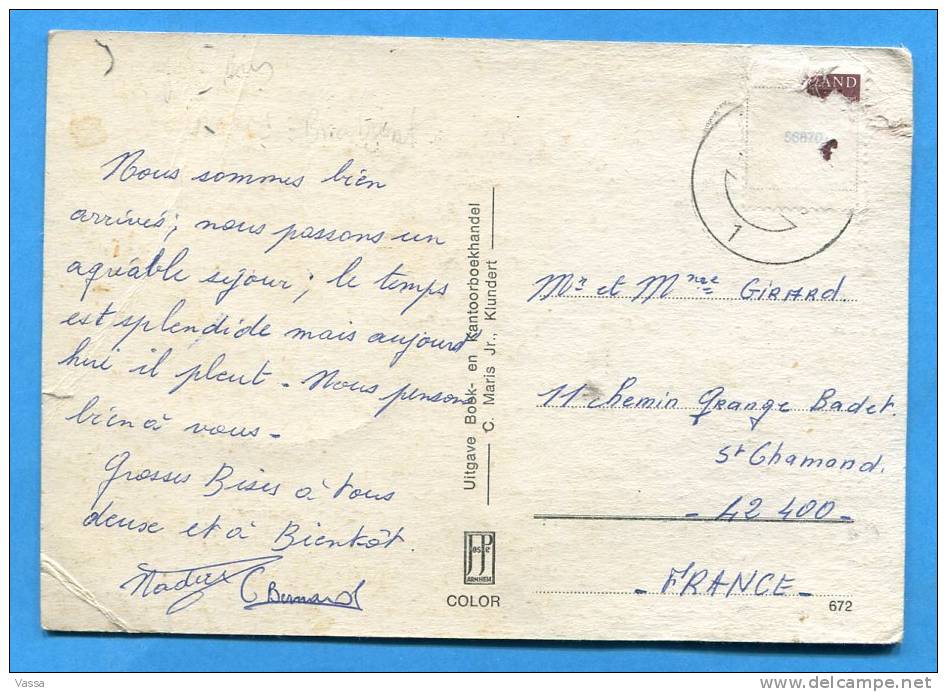 Nous sommes bien
arrivés; nous passons un
agréable séjour; le temps
est splendide mais aujourd'
hui il pleut - Nous pensons
bien à vous -
Grosses Bises à tous
deux et à Bientôt.
Bernard
Uitgave Boek- en Kantoorboekhandel
C. Maris Jr., Klundert
JosPé
ARNHEM
COLOR
LAND
56870
1
Mr et Mme GIRARD
11 Chemin Grange Badet.
St Chamond.
- 42 400 -
- FRANCE -
672
Vassa
delcampe.net